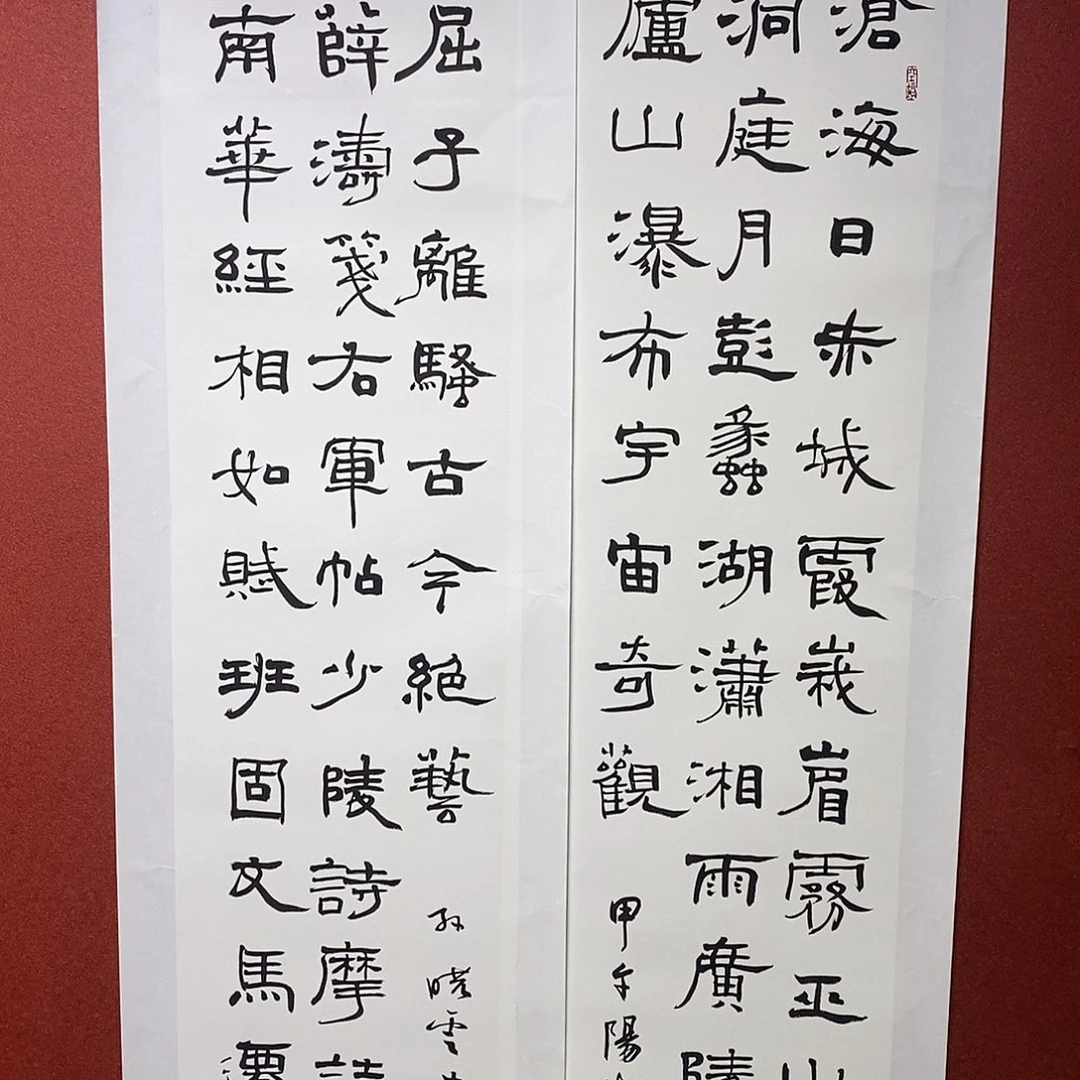 滄海日赤城霞峩嵋霧巫山
洞庭月彭蠡湖瀟湘雨廣陵
廬山瀑布宇宙奇觀
甲午陽
南華經相如賦班固文馬
薛濤箋右軍帖少陵詩摩詰
屈子離騷古今絕藝
孫曉雲